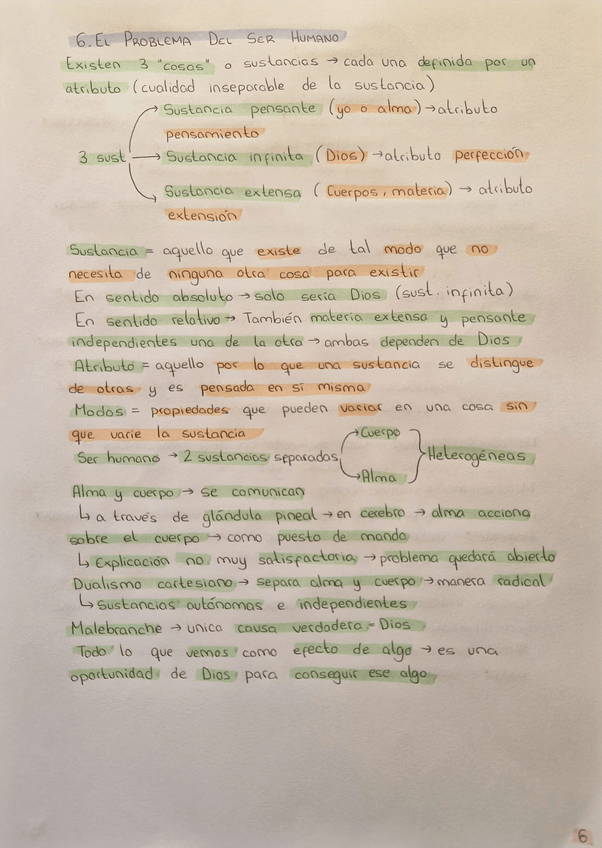 6. EL PROBLEMA DEL SER HUMANO
Existen 3 "cosas" o sustancias → cada una definida por un
atributo (cualidad inseparable de la sustancia)
Sustancia pensante (yo o alma) → atributo
pensamiento
3 sust → Sustancia infinita (Dios) → atributo perfección
Sustancia extensa (Cuerpos, materia) → atributo
extensión
Sustancia = aquello que existe de tal modo que no
necesita de ninguna otra cosa para existir
En sentido absoluto → solo sería Dios (sust. infinita)
En sentido relativo → También materia extensa y pensante
independientes una de la otra → ambas dependen de Dios
Atributo = aquello por lo que una sustancia se distingue
de otras y es pensada en sí misma
Modos = propiedades que pueden variar en una cosa sin
que varíe la sustancia
Ser humano → 2 sustancias separadas → Cuerpo → Alma } Heterogéneas
Alma y cuerpo → se comunican
↳ a través de glándula pineal → en cerebro → alma acciona
sobre el cuerpo → como puesto de mando
↳ Explicación no muy satisfactoria → problema quedará abierto
Dualismo cartesiano → separa alma y cuerpo → manera radical
↳ Sustancias autónomas e independientes
Malebranche → unica causa verdadera = Dios
Todo lo que vemos como efecto de algo → es una
oportunidad de Dios para conseguir ese algo
6